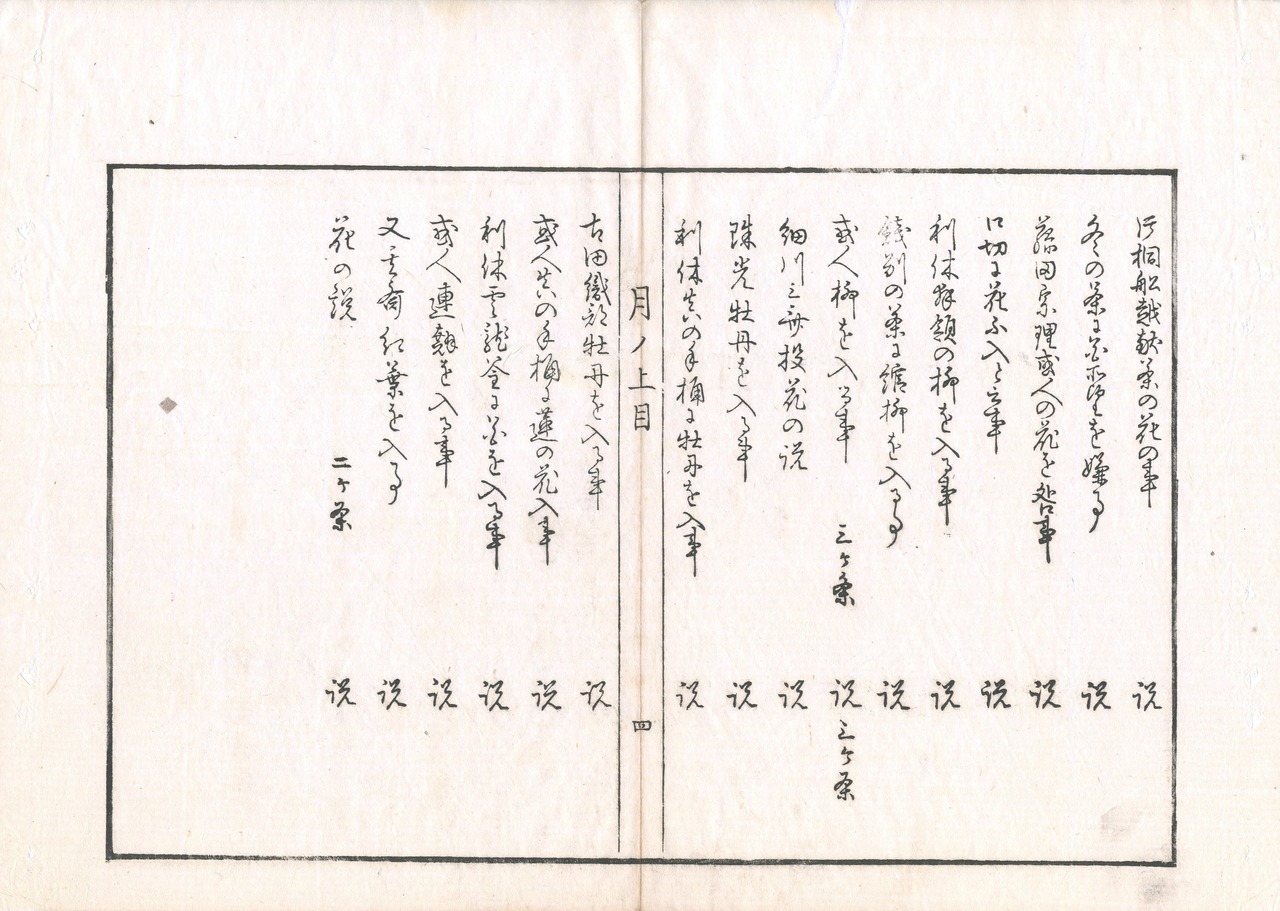 片桐船越茶の花の事 説
冬の茶に花所望を嫌る事 説
藤田宗理或人の花を咎事 説
口切に花不入と云事 説
利休拝領の柳を入る事 説
餞別の茶に綰柳を入る事 説
或人柳を入る事 三ケ条 説 三ケ条
細川三斎投花の説 説
珠光牡丹を入る事 説
利休真の手桶に牡丹を入事 説
月ノ上目 四
古田織部牡丹を入る事 説
或人真の手桶に蓮の花入事 説
利休雲龍釜に花を入る事 説
或人連翹を入る事 説
又云紅葉を入る事 説
花の説 二ケ条 説